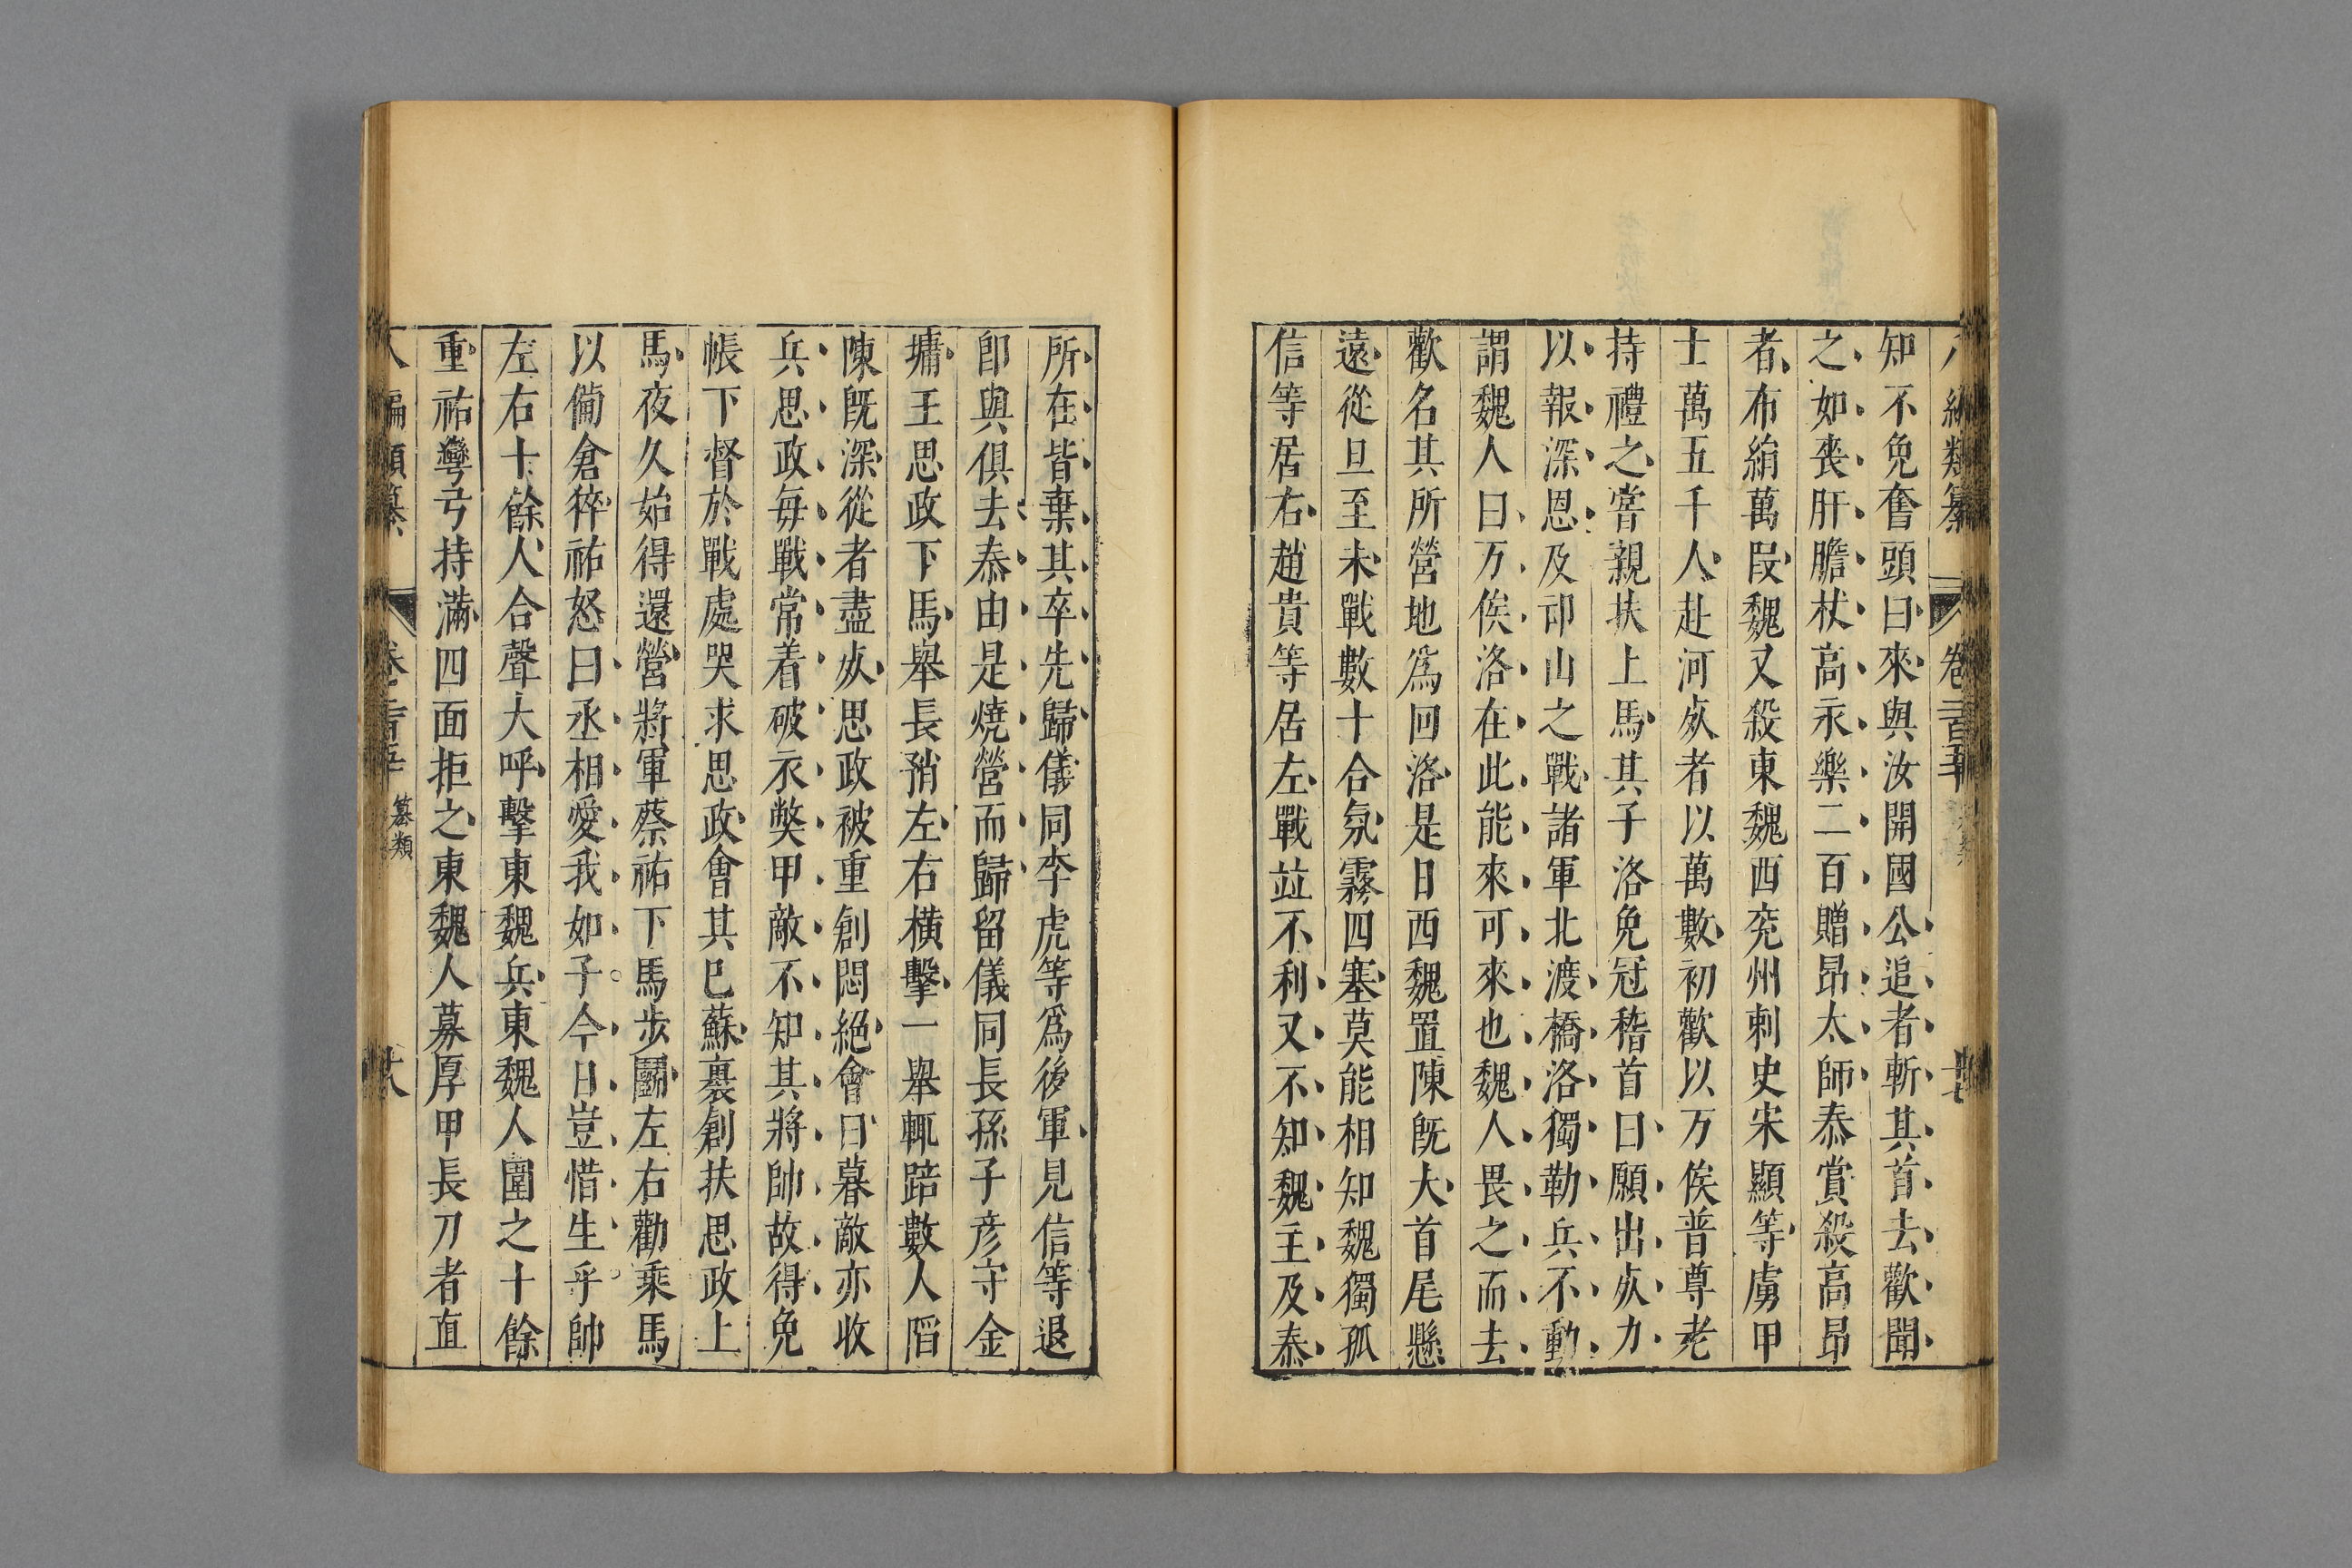 知不免奮頭曰來與汝開國公追者斬其首去歡聞
之如喪肝膽杖高永樂二百贈昂太師泰賞殺高昂
者布絹萬段魏又殺東魏西兗州刺史宋顯等虜甲
士萬五千人赴河死者以萬數初歡以万俟普尊老
持禮之嘗親扶上馬其子洛免冠稽首曰願出死力
以報深恩及邙山之戰諸軍北渡橋洛獨勒兵不動
謂魏人曰万俟洛在此能來可來也魏人畏之而去
歡名其所營地爲回洛是日西魏置陳旣大首尾懸
遠從旦至未戰數十合氛霧四塞莫能相知魏獨孤
信等居右趙貴等居左戰竝不利又不知魏主及泰
所在皆棄其卒先歸儀同李虎等爲後軍見信等退
卽與俱去泰由是燒營而歸留儀同長孫子彥守金
墉王思政下馬舉長矟左右橫擊一舉輒踣數人陷
陳旣深從者盡死思政被重創悶絕會日暮敵亦收
兵思政每戰常着破衣弊甲敵不知其將帥故得免
帳下督於戰處哭求思政會其已蘇裹創扶思政上
馬夜久始得還營將軍蔡祐下馬步鬭左右勸乘馬
以備倉猝祐怒曰丞相愛我如子今日豈惜生乎帥
左右十餘人合聲大呼擊東魏兵東魏人圍之十餘
重祐彎弓持滿四面拒之東魏人募厚甲長刀者直
八編類纂 卷二百五 纂類 十八